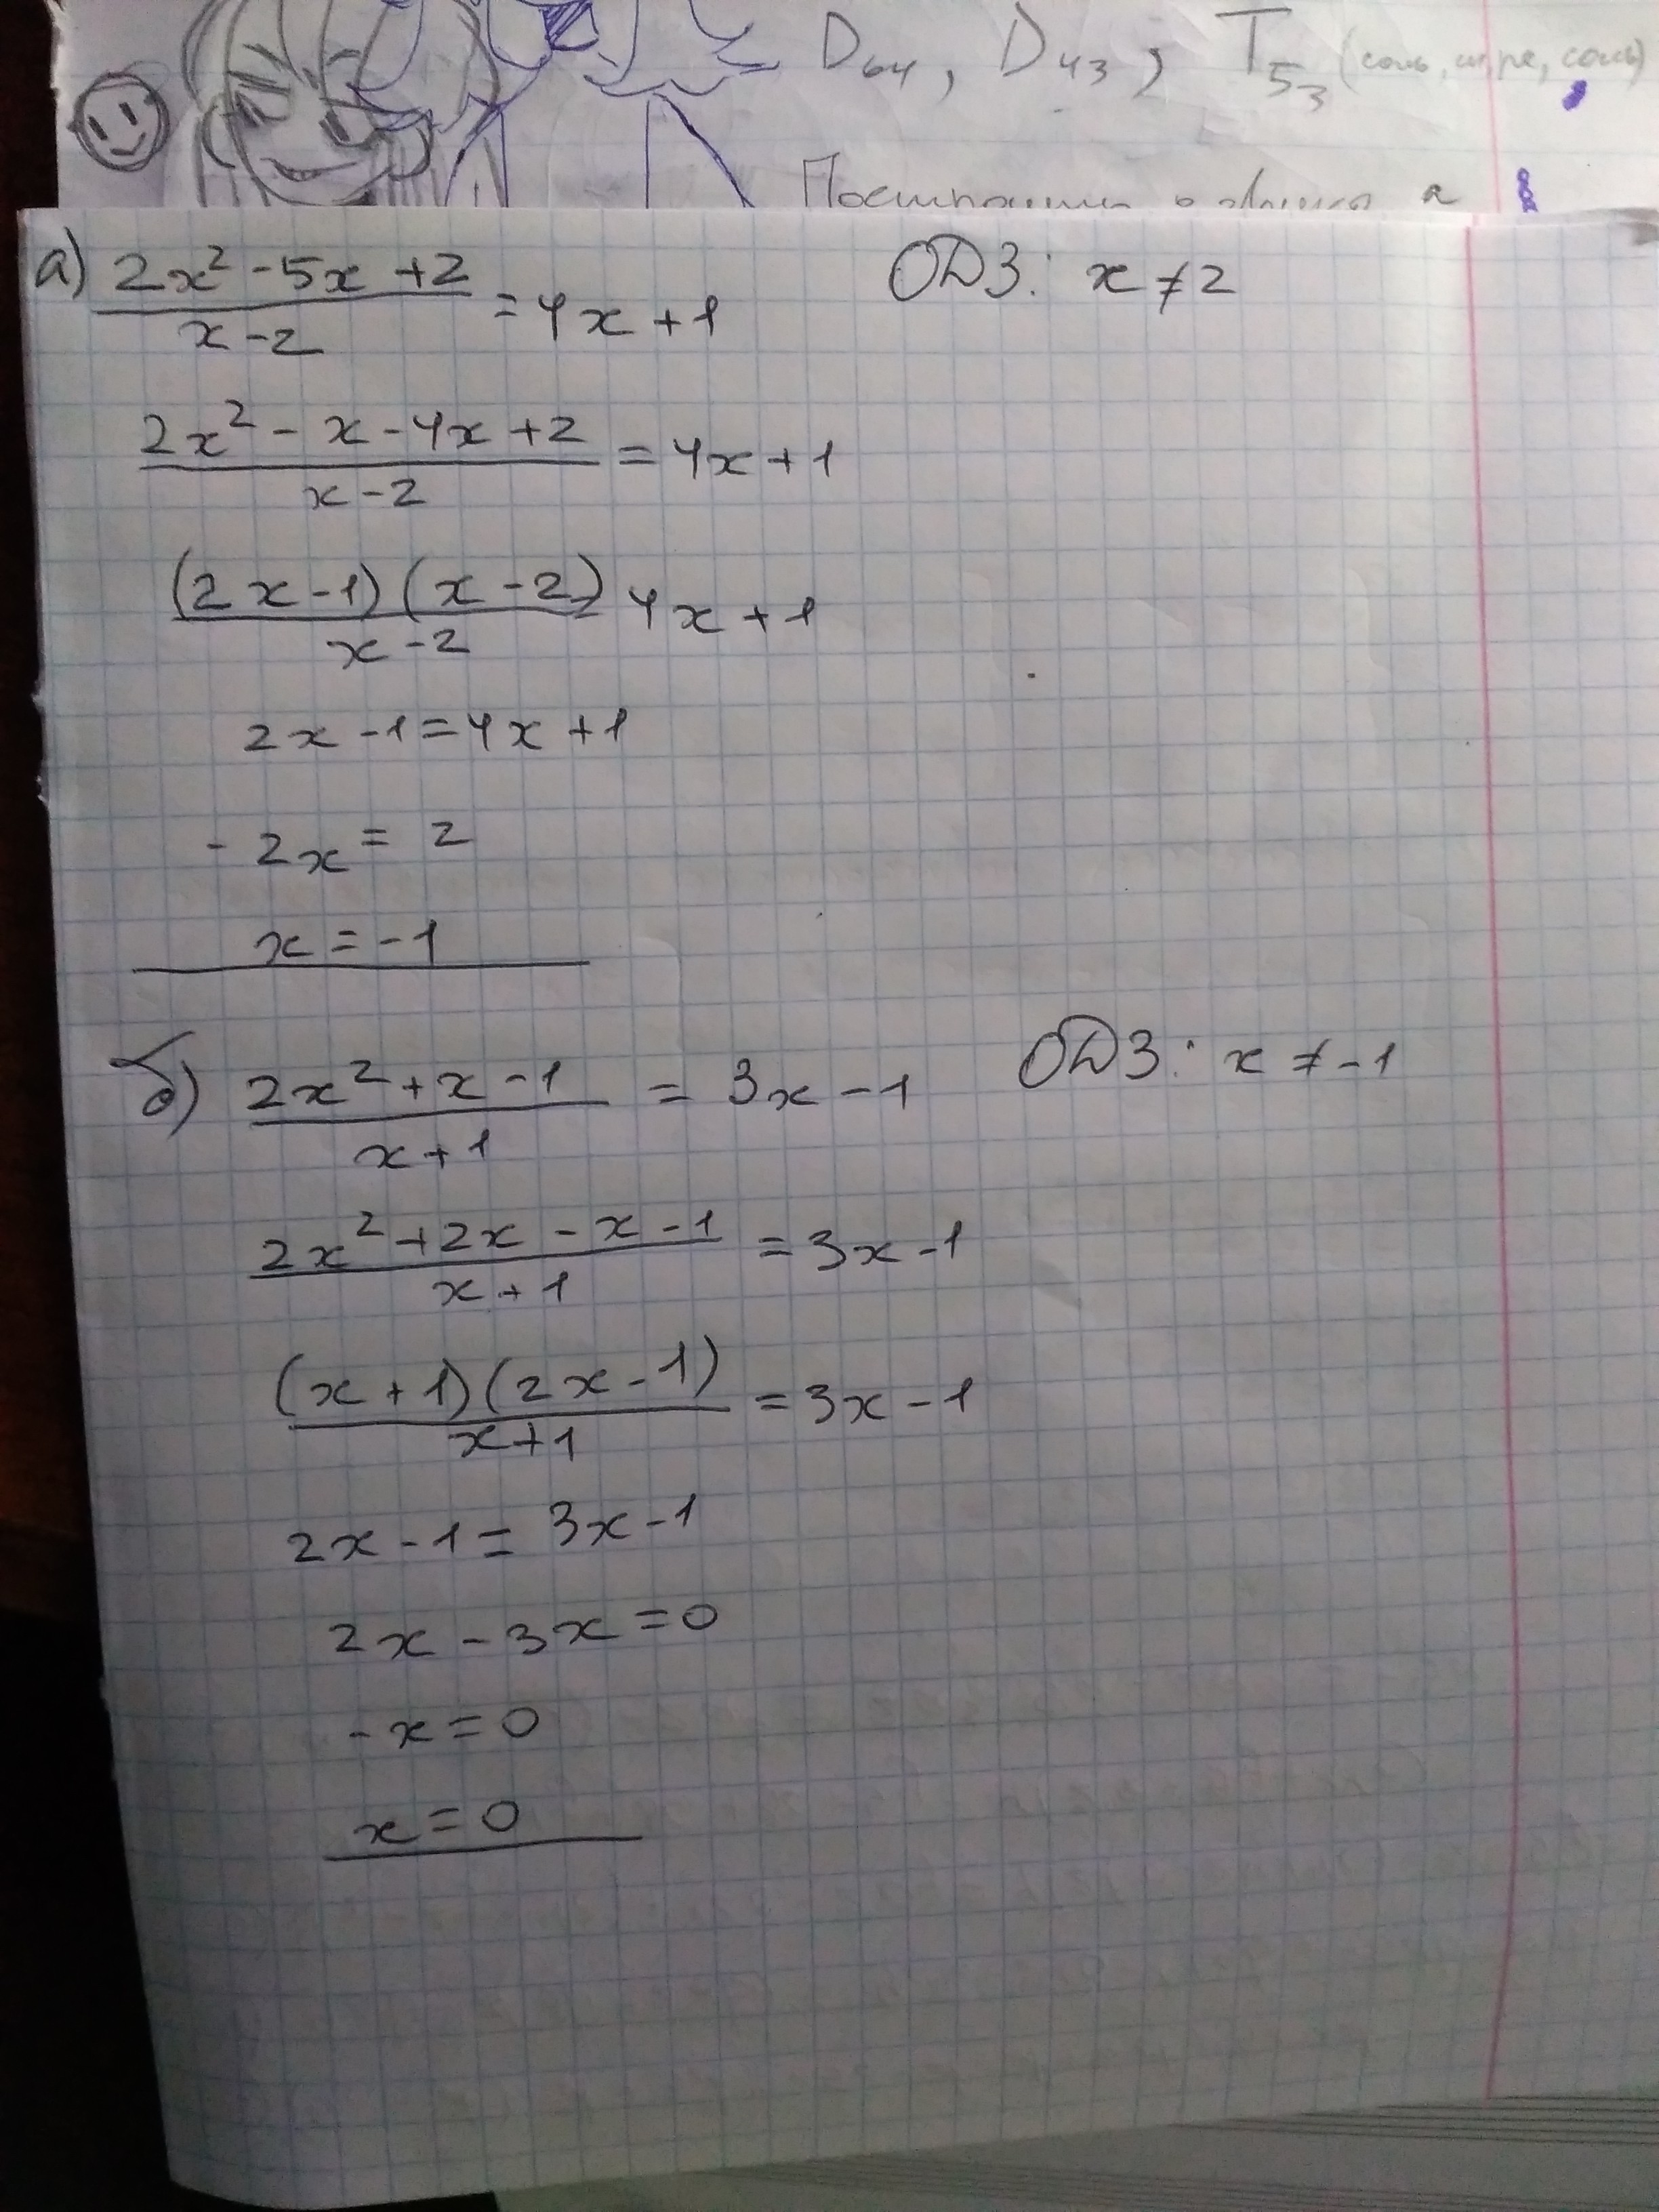 D₆₄, D₄₃, T₅₃ (соль, си, ре, соль)
а) (2x² - 5x + 2)/(x - 2) = 4x + 1 ОДЗ: x ≠ 2
(2x² - x - 4x + 2)/(x - 2) = 4x + 1
(2x - 1)(x - 2)/(x - 2) = 4x + 1
2x - 1 = 4x + 1
- 2x = 2
x = -1
б) (2x² + x - 1)/(x + 1) = 3x - 1 ОДЗ: x ≠ -1
(2x² + 2x - x - 1)/(x + 1) = 3x - 1
(x + 1)(2x - 1)/(x + 1) = 3x - 1
2x - 1 = 3x - 1
2x - 3x = 0
- x = 0
x = 0